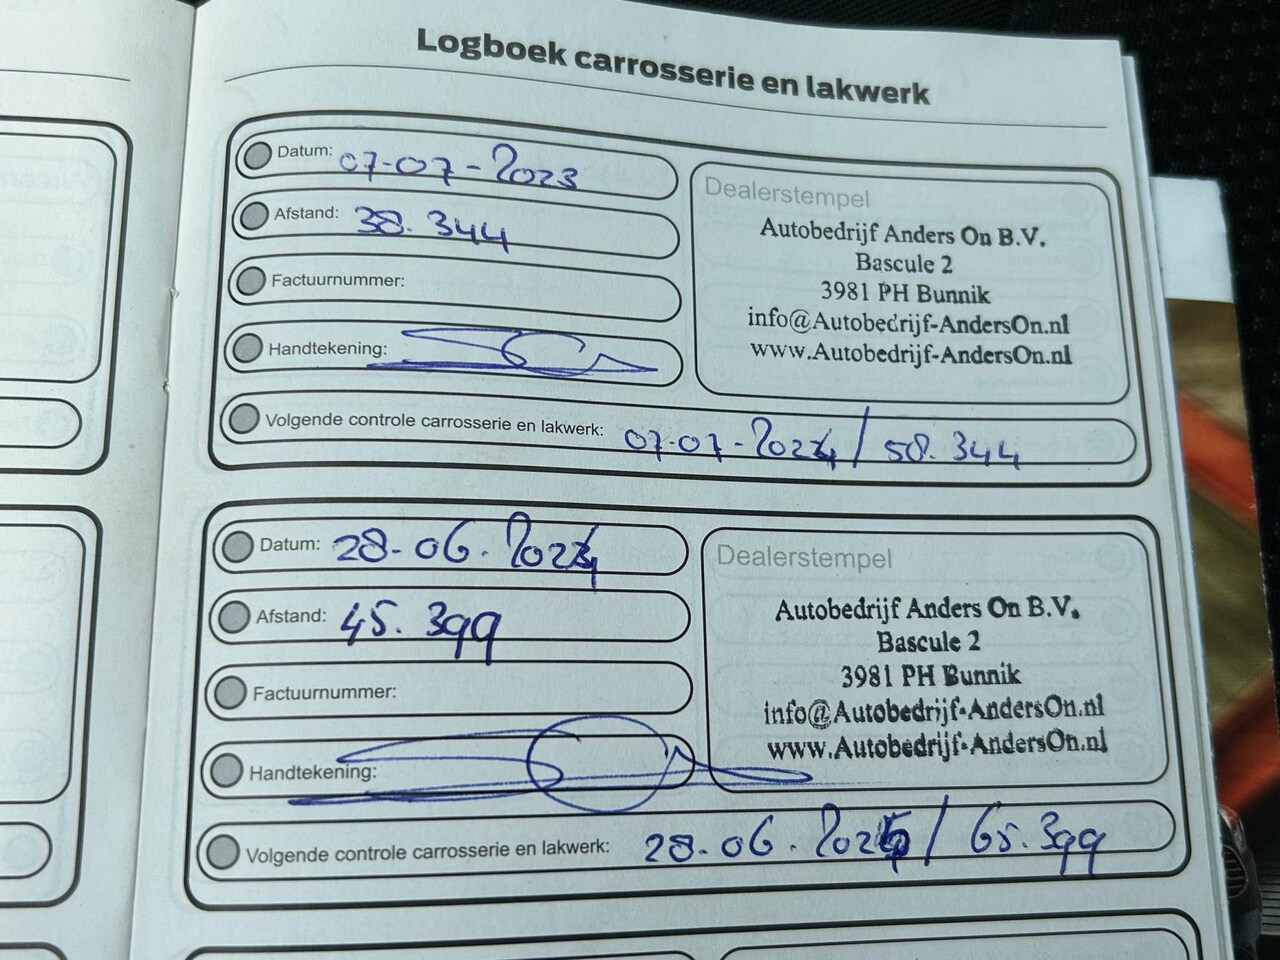 Logboek carrosserie en lakwerk
Datum: 07-07-2023
Afstand: 38.344
Factuurnummer:
Handtekening:
Dealerstempel
Autobedrijf Anders On B.V.
Bascule 2
3981 PH Bunnik
info@Autobedrijf-AndersOn.nl
www.Autobedrijf-AndersOn.nl
Volgende controle carrosserie en lakwerk: 07-07-2024 / 58.344
Datum: 28-06-2024
Afstand: 45.399
Factuurnummer:
Handtekening:
Dealerstempel
Autobedrijf Anders On B.V.
Bascule 2
3981 PH Bunnik
info@Autobedrijf-AndersOn.nl
www.Autobedrijf-AndersOn.nl
Volgende controle carrosserie en lakwerk: 28-06-2025 / 65.399